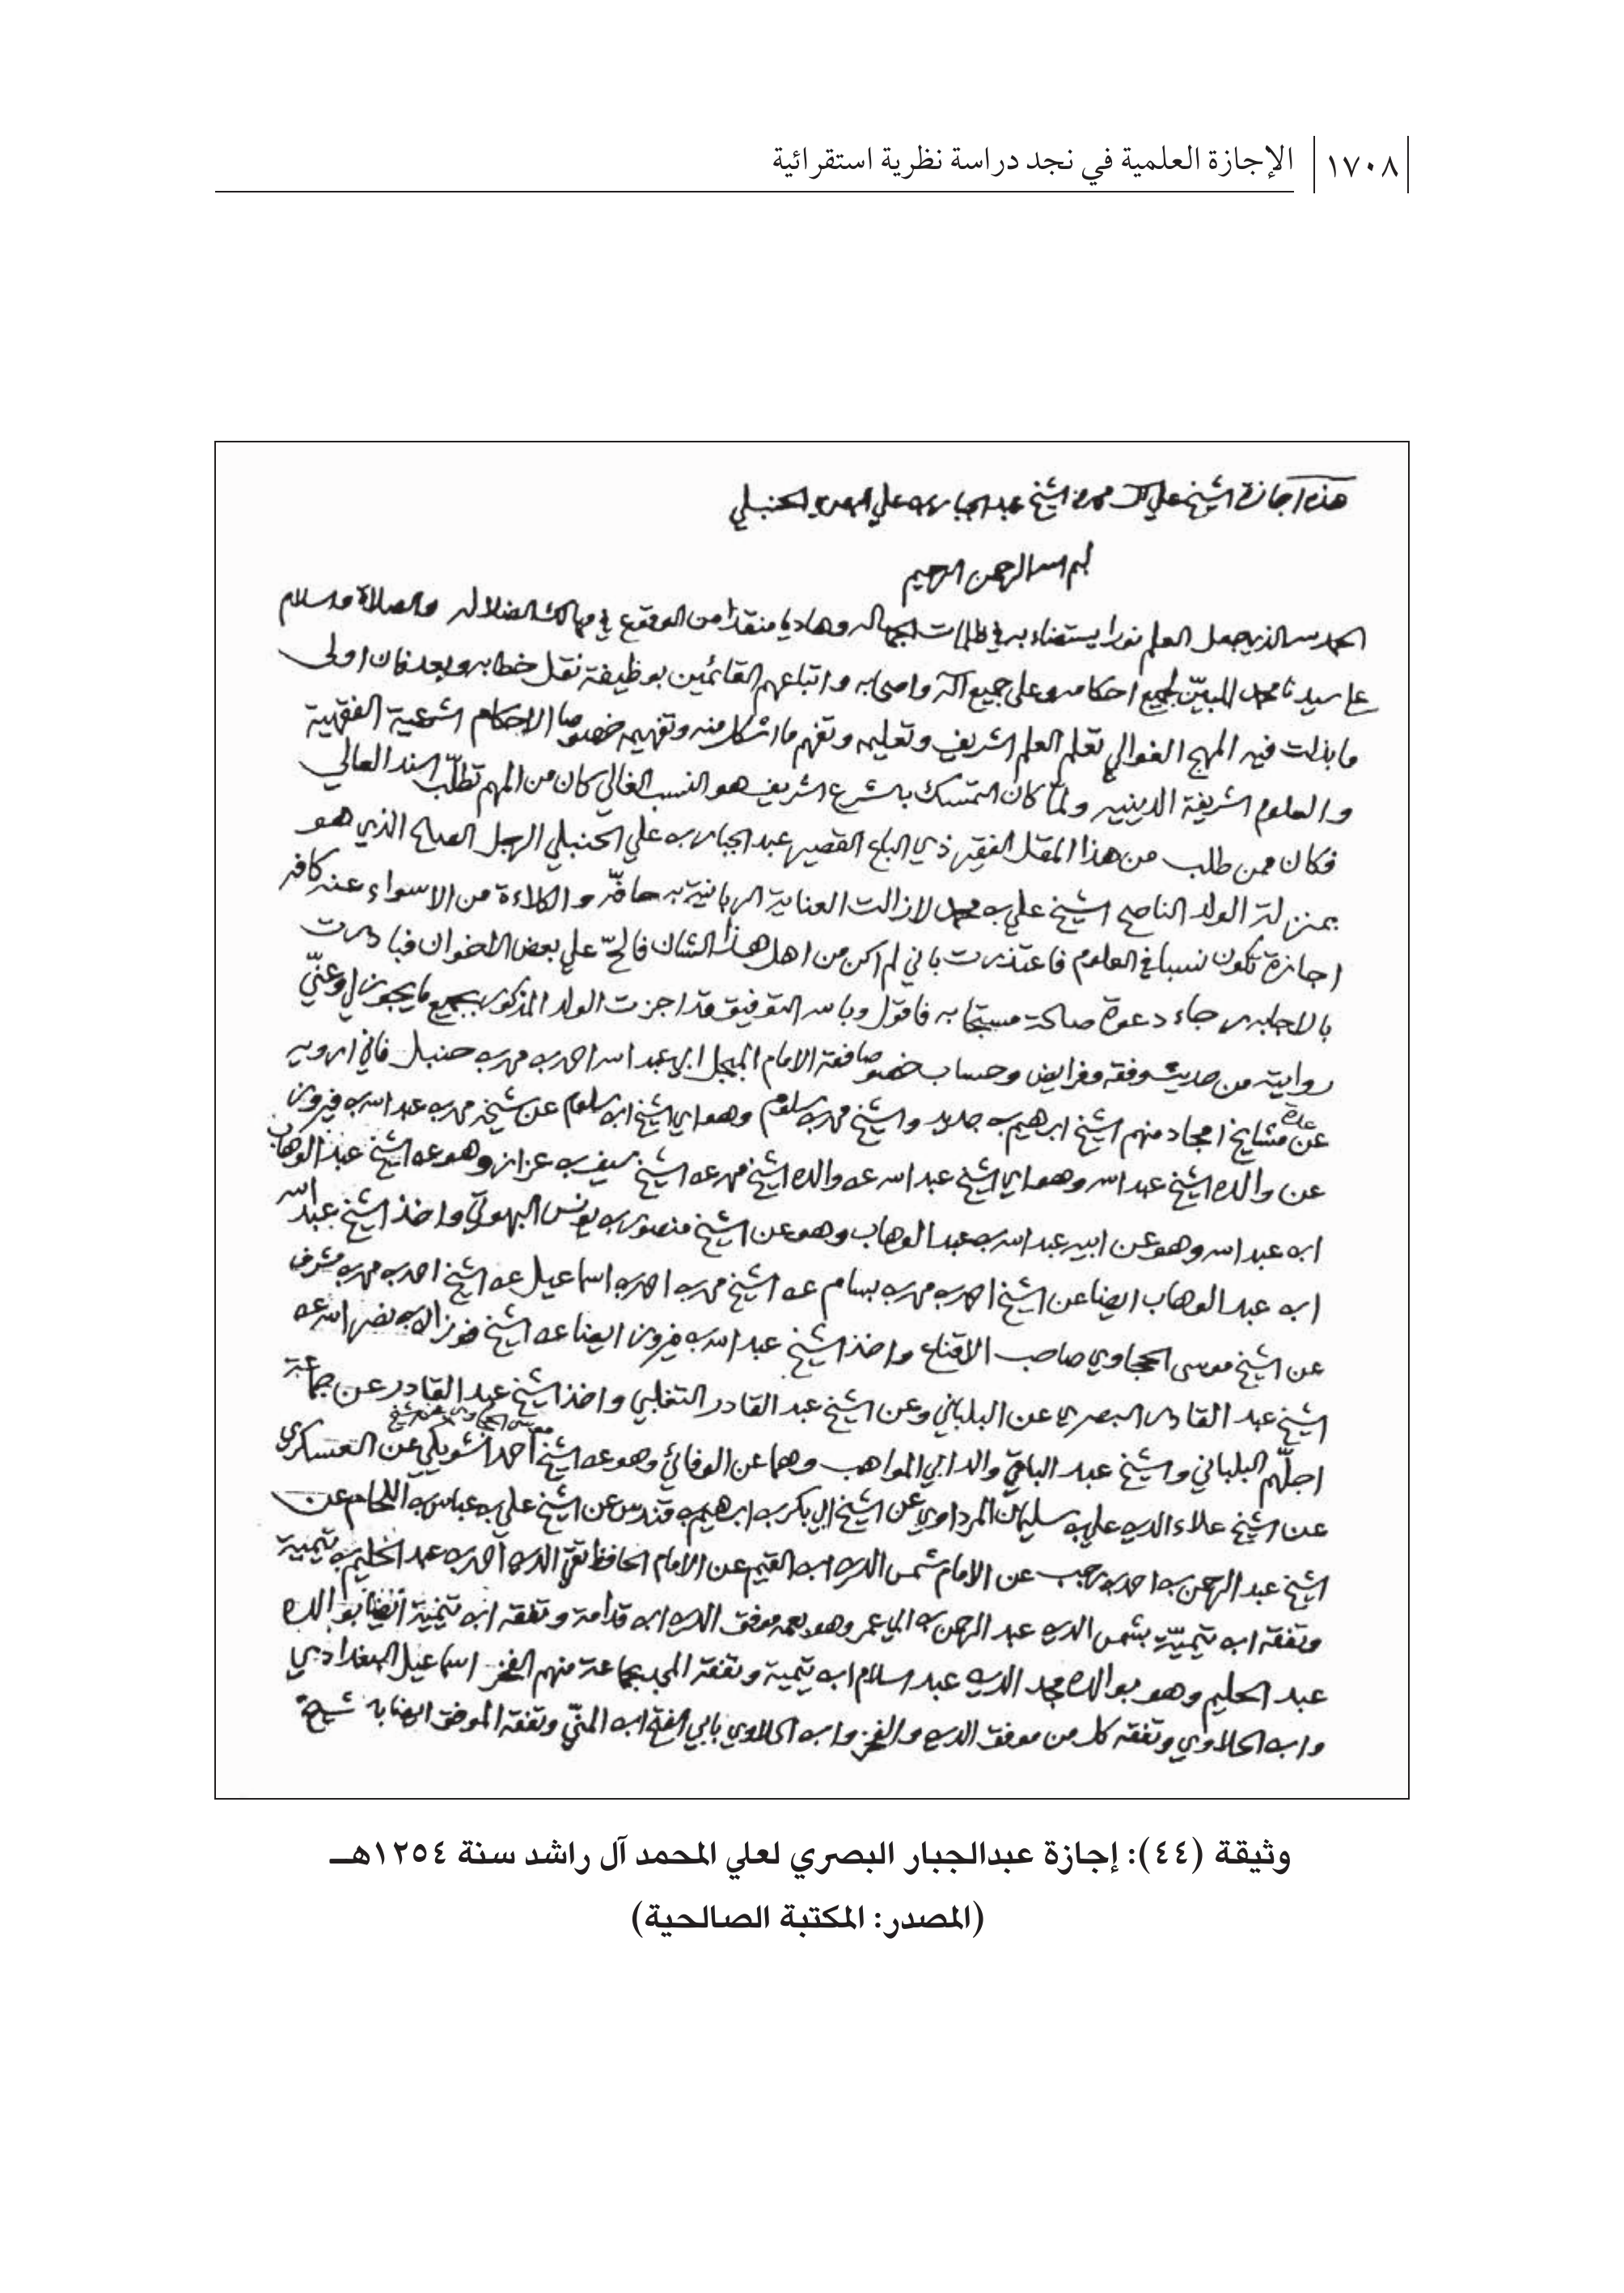 ١٧٠٨ الإجازة العلمية في نجد دراسة نظرية استقرائية
هذه اجازة الشيخ علي ال محمد من الشيخ عبد الجبار بن علي البصري الحنبلي
بسم الله الرحمن الرحيم
الحمد لله الذي جعل العلم نورا يستضاء به في ظلمات الجهاله وهاديا منقذا من الوقوع في مهالك الضلاله والصلاة والسلام
على سيدنا محمد المبيّن لجميع احكامه وعلى جميع آله واصحابه واتباعهم القائمين بوظيفة نقل خطابه وبعد فان اولى
ما بذلت فيه المهج الغوالي تعلم العلم الشريف وتعليمه وتفهم ما اشكل منه وتفهيمه خصوصا الاحكام الشرعية الفقهية
والعلوم الشريفة الدينيه ولمّا كان التمسك بالشرع الشريف هو النسب الغالي كان من المهم تطلّب السند العالي
فكان ممن طلب من هذا المقل الفقير ذي الباع القصير عبد الجبار بن علي الحنبلي الرجل الصالح الذي هو
بمنزلة الولد الناصح الشيخ علي بن محمد لازالت العناية الربانية به حافّه والكلاءة من الاسواء عنه كافه
اجازة تكون نسبا في العلوم فاعتذرت باني لم اكن من اهل هذا الشان فالحّ علي بعض الاخوان فبادرت
بالاجابه رجاء دعوة صالحة مستجابه فاقول وبالله التوفيق قد اجزت الولد المذكور بجميع ما يجوز لي وعنّي
روايته من حديث وفقه وفرايض وحساب خصوصا فقه الامام المبجل ابي عبد الله احمد بن محمد بن حنبل فاني ارويه
عن عدة مشايخ امجاد منهم الشيخ ابرهيم بن جديد والشيخ محمد بن سلوم وهو اي الشيخ ابن سلوم عن شيخه محمد بن عبد الله بن فيروز
عن والده الشيخ عبد الله وهو اي الشيخ عبد الله عن والده الشيخ محمد عن الشيخ سيف بن عزاز وهو عن الشيخ عبد الوهاب
ابن عبد الله وهو عن ابيه عبد الله بن عبد الوهاب وهو عن الشيخ منصور بن يونس البهوتي واخذ الشيخ عبد الله
ابن عبد الوهاب ايضا عن الشيخ احمد بن محمد بن بسام عن الشيخ محمد بن احمد بن اسماعيل عن الشيخ احمد بن محمد بن مشرف
عن الشيخ موسى الحجاوي صاحب الاقناع واخذ الشيخ عبد الله بن فيروز ايضا عن الشيخ فوزان بن نصر الله عن
الشيخ عبد القادر البصري عن البلباني وعن الشيخ عبد القادر التغلبي واخذ الشيخ عبد القادر عن جماعة
اجلّهم البلباني والشيخ عبد الباقي والد ابي المواهب وهما عن الوفائي وهو عن الشيخ موسى الحجاوي عن الشيخ احمد الشويكي عن العسكري
عن الشيخ علاء الدين علي بن سليمان المرداوي عن الشيخ ابي بكر بن ابرهيم بن قندس عن الشيخ علي بن عباس بن اللحام عن
الشيخ عبد الرحمن بن احمد بن رجب عن الامام شمس الدين ابن القيم عن الامام الحافظ تقي الدين احمد بن عبد الحليم بن تيمية
وتفقه ابن تيميّة بشمس الدين عبد الرحمن بن ابي عمر وهو بعمه موفق الدين ابن قدامة وتفقه ابن تيمية ايضا بوالده
عبد الحليم وهو بوالده مجد الدين عبد السلام ابن تيمية وتفقه المجد بجماعة منهم الفخر اسماعيل البغدادي
وابن الحلاوي وتفقه كل من موفق الدين والفخر وابن الحلاوي بابي الفتح ابن المنّي وتفقه الموفق ايضا بالشيخ
وثيقة (٤٤): إجازة عبدالجبار البصري لعلي المحمد آل راشد سنة ١٢٥٤هـ
(المصدر: المكتبة الصالحية)